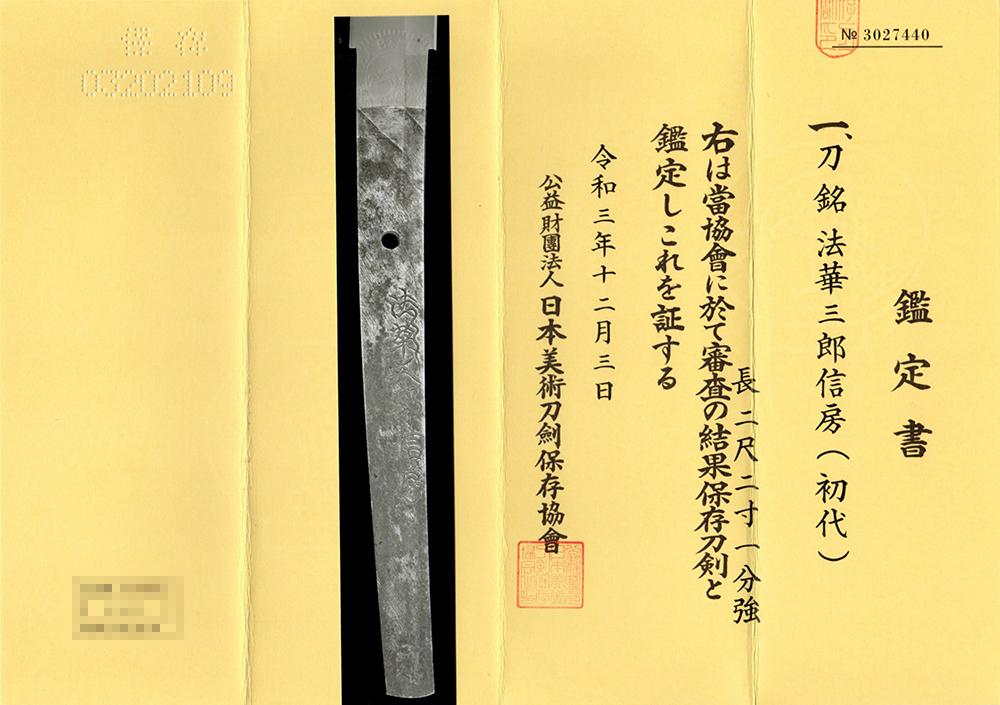 № 3027440
鑑定書
一、刀 銘 法華三郎信房（初代）
長 二尺二寸一分強
右は當協會に於て審査の結果保存刀剣と
鑑定しこれを証する
令和三年十二月三日
公益財團法人 日本美術刀劍保存協會
保存
03202109
法華三郎信房